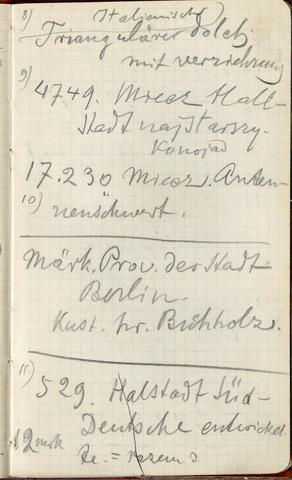 8) Italienischer
Triangulärer Dolch
mit verzichnung
9) 4749. Miecz Hall-
stadt najstarszy.
Konojad
17.230 Miecz. Anten-
10) nenschwert.
Märk. Prov. der Stadt
Berlin.
Kust. hr. Buchholz.
11) 529. Halstadt Süd-
Deutsche entwickel.
12 mrk
Fe. = razem z